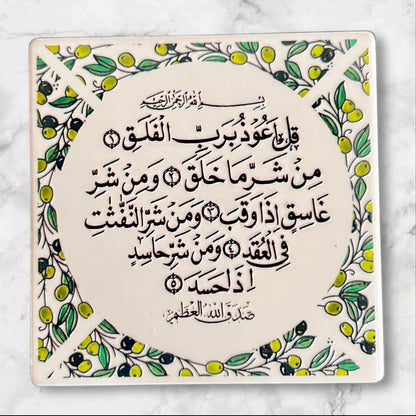 بسم الله الرحمن الرحيم
قل اعوذ برب الفلق ١
من شر ما خلق ٢ ومن شر
غاسق اذا وقب ٣ ومن شر النفثت
في العقد ٤ ومن شر حاسد
اذا حسد ٥
صدق الله العظيم